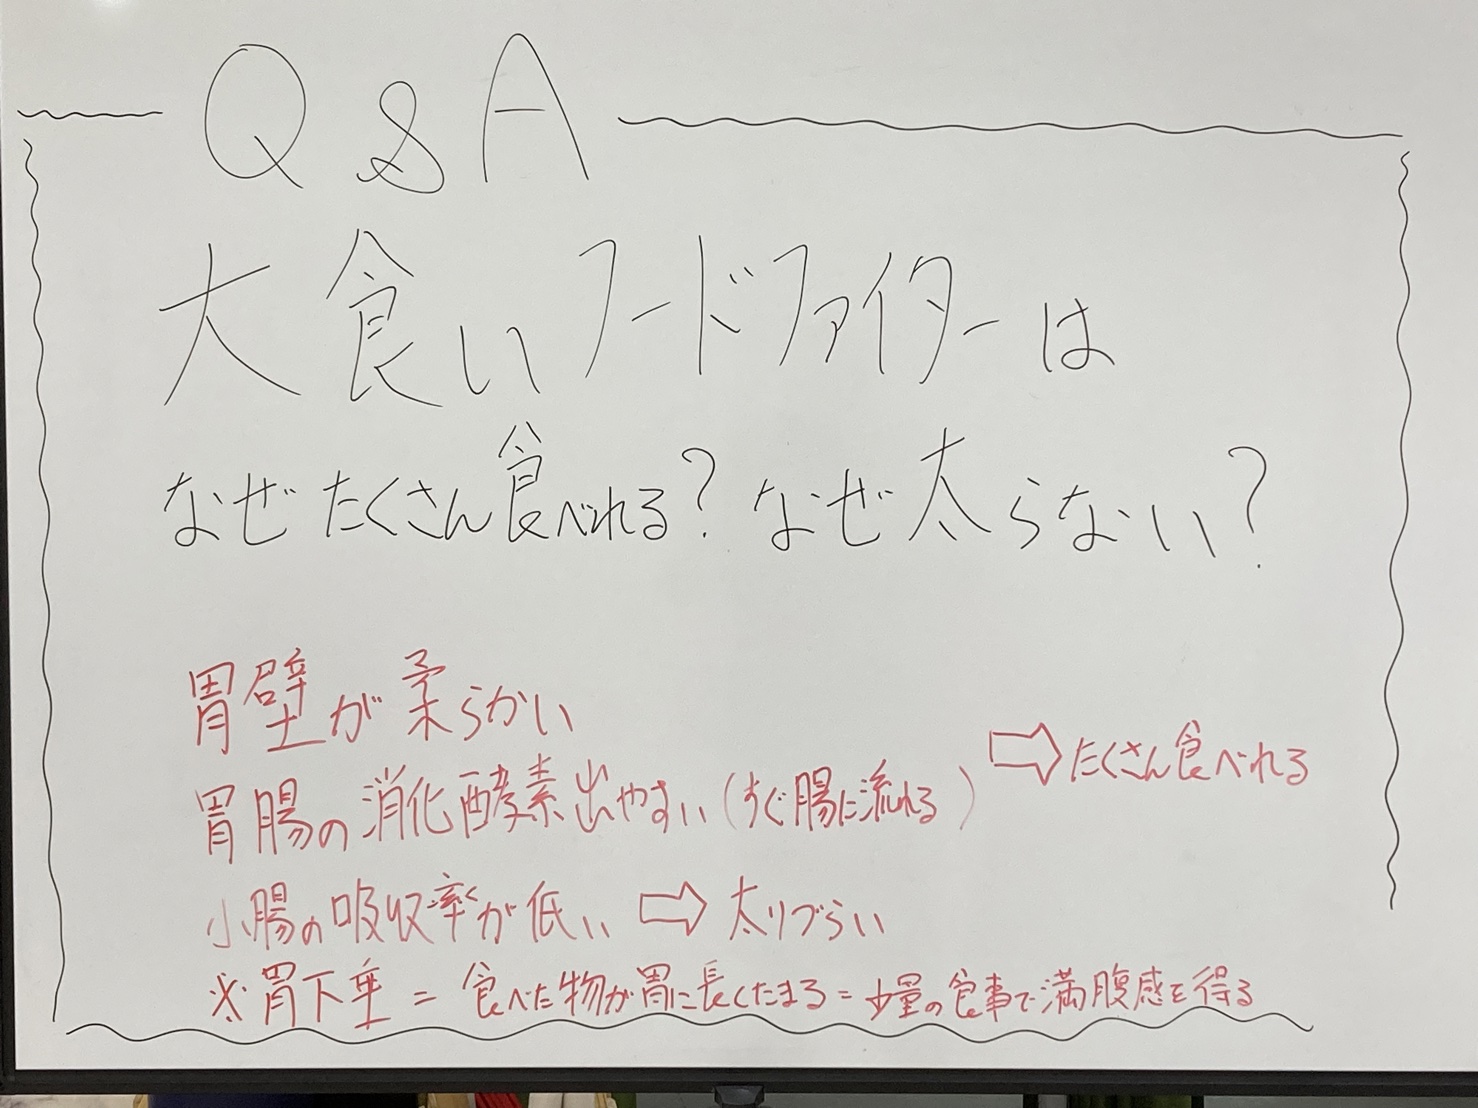 Q&A
大食いフードファイターは
なぜたくさん食べれる?なぜ太らない?
胃壁が柔らかい
胃腸の消化酵素出やすい(すぐ腸に流れる)⇨たくさん食べれる
小腸の吸収率が低い⇨太りづらい
※胃下垂=食べた物が胃に長くたまる=少量の食事で満腹感を得る